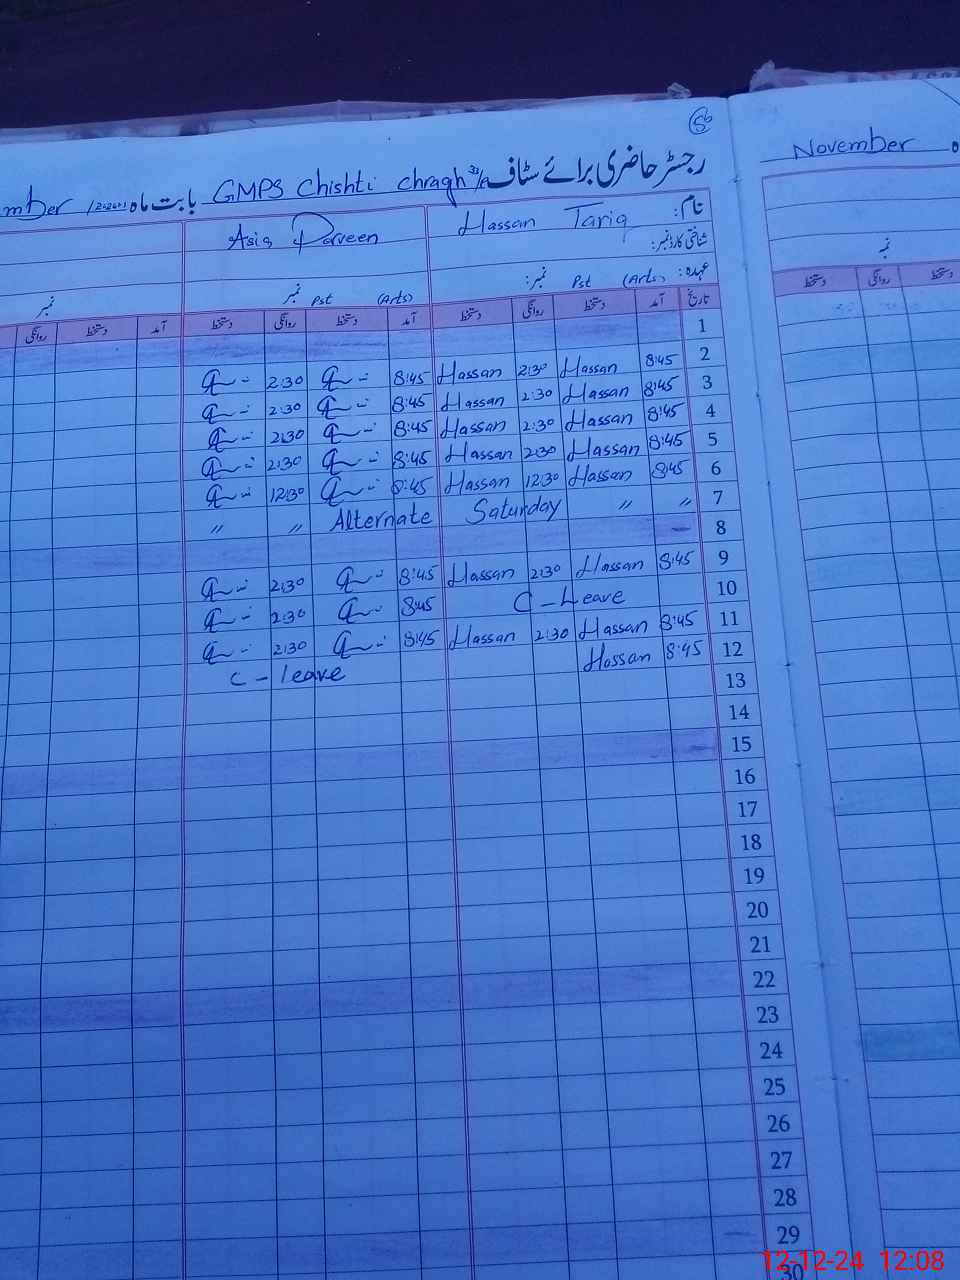 56
رجسٹر حاضری برائے سٹاف GMPS Chishti chragh بابت ماہ mber
November
نام: Hassan Tariq
Asia Parveen
شناختی کارڈ نمبر:
عہدہ: Pst (Arts) نمبر:
Pst (Arts) نمبر
نمبر
نمبر
تاریخ آمد دستخط روانگی دستخط آمد دستخط روانگی دستخط آمد دستخط روانگی
دستخط روانگی دستخط
1
2 8:45 Hassan 2:30 Hassan 8:45 2:30
3 8:45 Hassan 2:30 Hassan 8:45 2:30
4 8:45 Hassan 2:30 Hassan 8:45 2:30
5 8:45 Hassan 2:30 Hassan 8:45 2:30
6 8:45 Hassan 12:30 Hassan 8:45 12:30
7 〃 〃 Alternate Saturday 〃 〃
8
9 8:45 Hassan 2:30 Hassan 8:45 2:30
10 C - Leave 8:45 2:30
11 8:45 Hassan 2:30 Hassan 8:45 2:30
12 8:45 Hassan C - leave
13
14
15
16
17
18
19
20
21
22
23
24
25
26
27
28
29
30
12-12-24 12:08